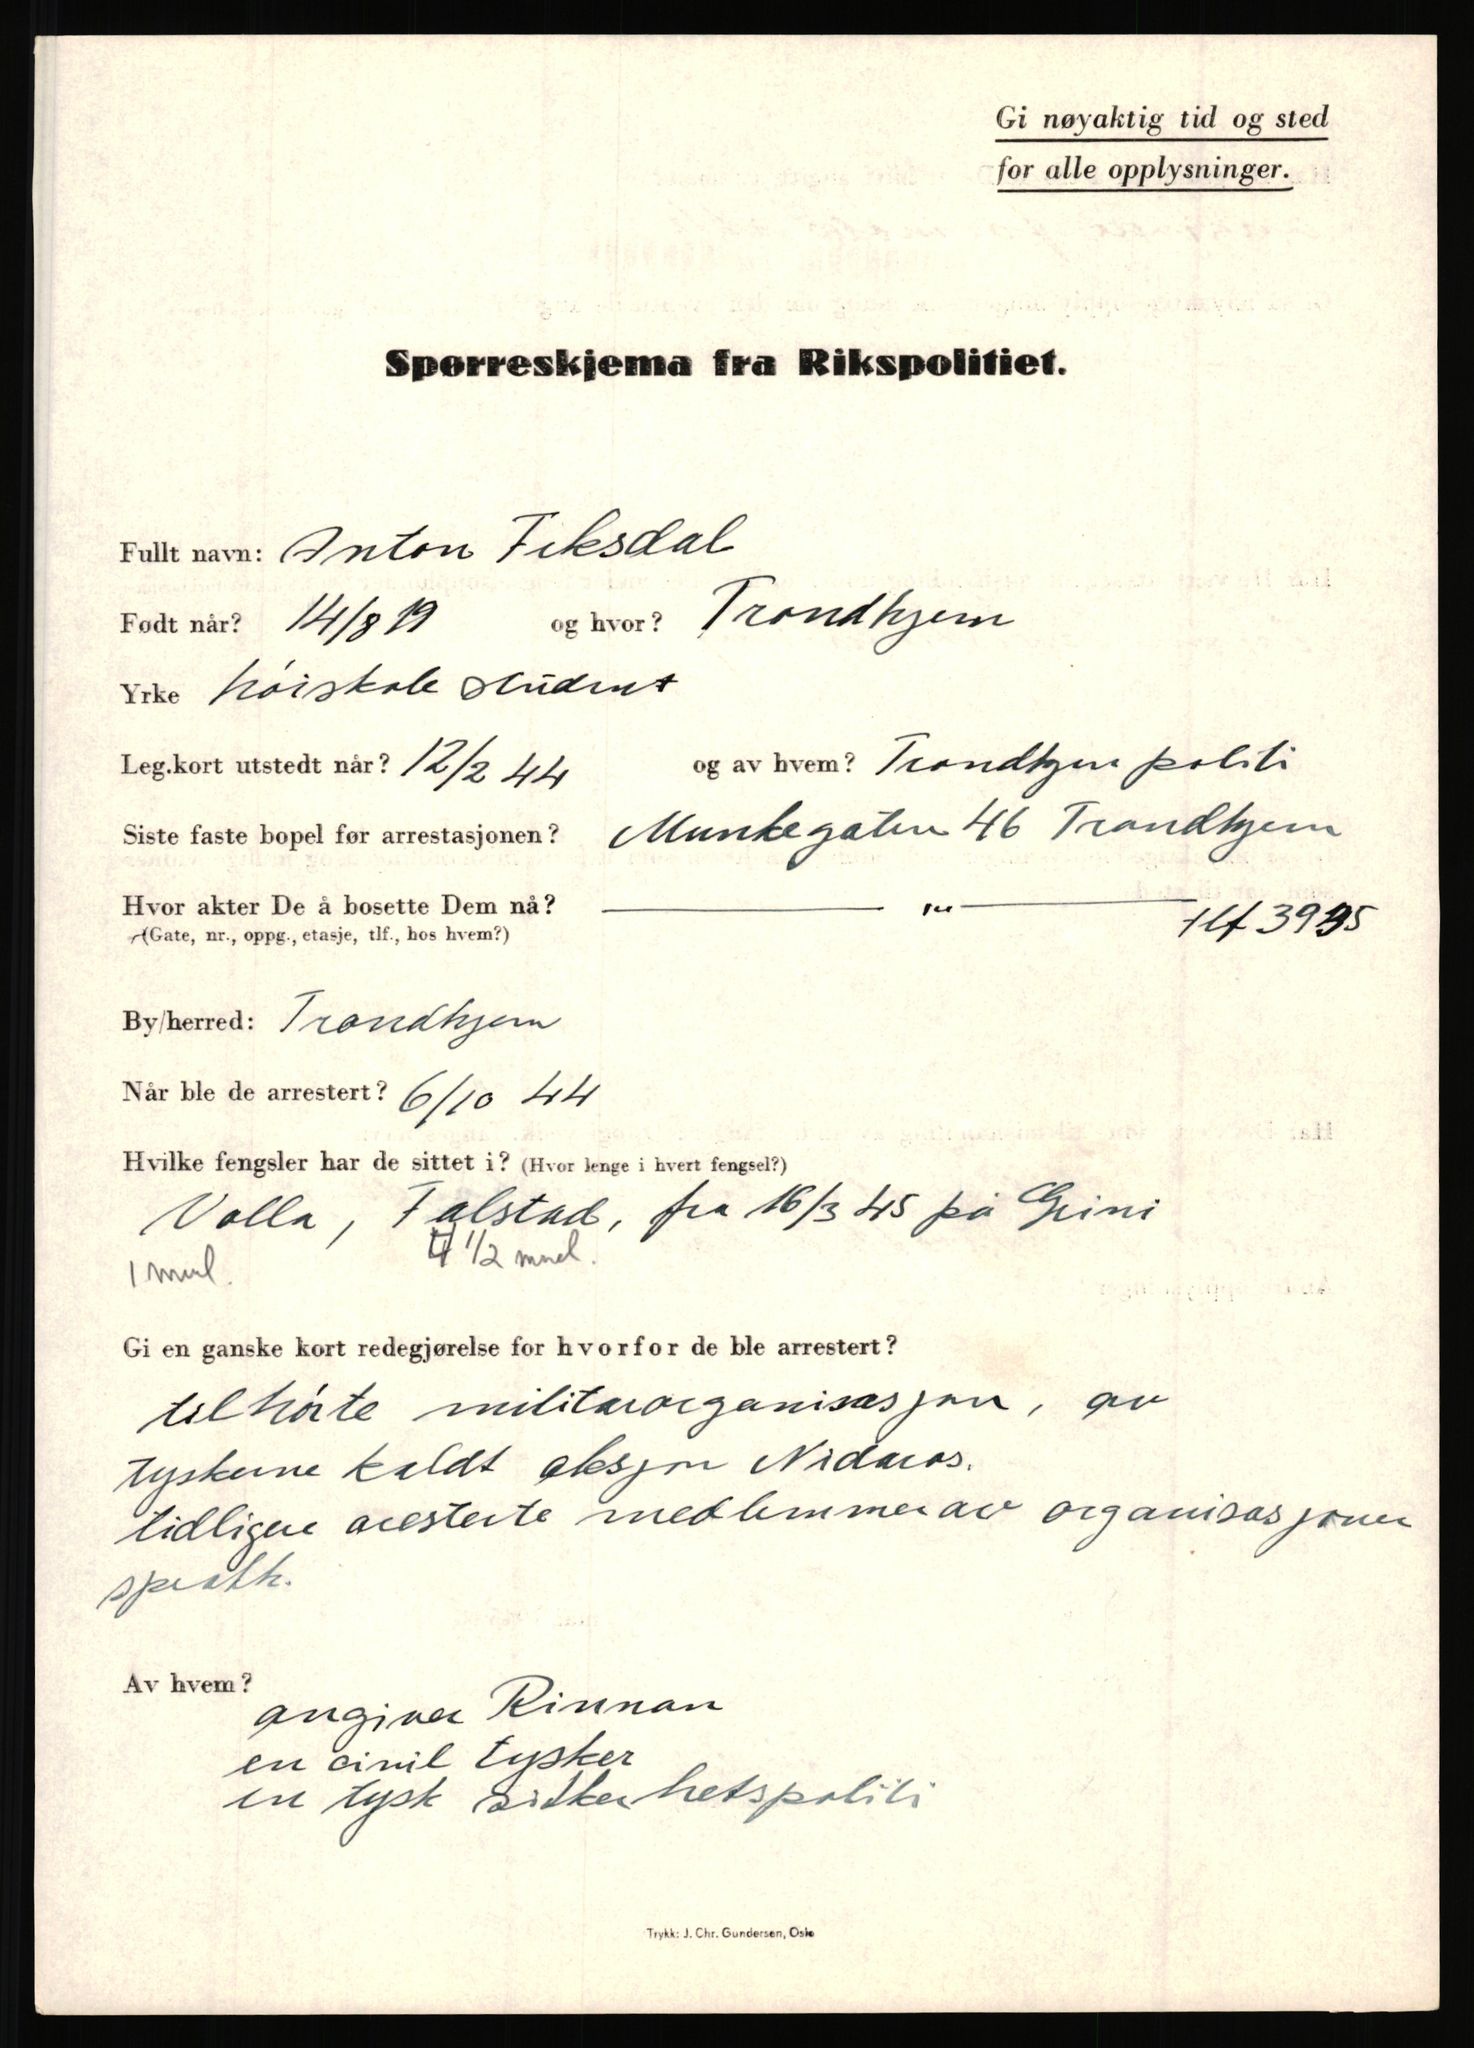 Gi nøyaktig tid og sted
for alle opplysninger.
Spørreskjema fra Rikspolitiet.
Fullt navn: Anton Feksdal
Født når? 14/8 19 og hvor? Trondhjem
Yrke høiskole student
Leg.kort utstedt når? 12/2 44 og av hvem? Trondhjem politi
Siste faste bopel før arrestasjonen? Munkegaten 46 Trondhjem
Hvor akter De å bosette Dem nå? — " —
(Gate, nr., oppg., etasje, tlf., hos hvem?) tlf 3935
By/herred: Trondhjem
Når ble de arrestert? 6/10 44
Hvilke fengsler har de sittet i? (Hvor lenge i hvert fengsel?)
Volla, Falstad, fra 16/3 45 på Grini
1 mnd. 4 1/2 mnd.
Gi en ganske kort redegjørelse for hvorfor de ble arrestert?
tilhørte militærorganisasjon, av
tyskerne kaldt aksjon Nidaros.
tidligere aresterte medlemmer av organisasjonen
sprakk.
Av hvem?
angiver Rinnan
en civil tysker
en tysk sikkerhetspoliti
Trykk: J. Chr. Gundersen, Oslo